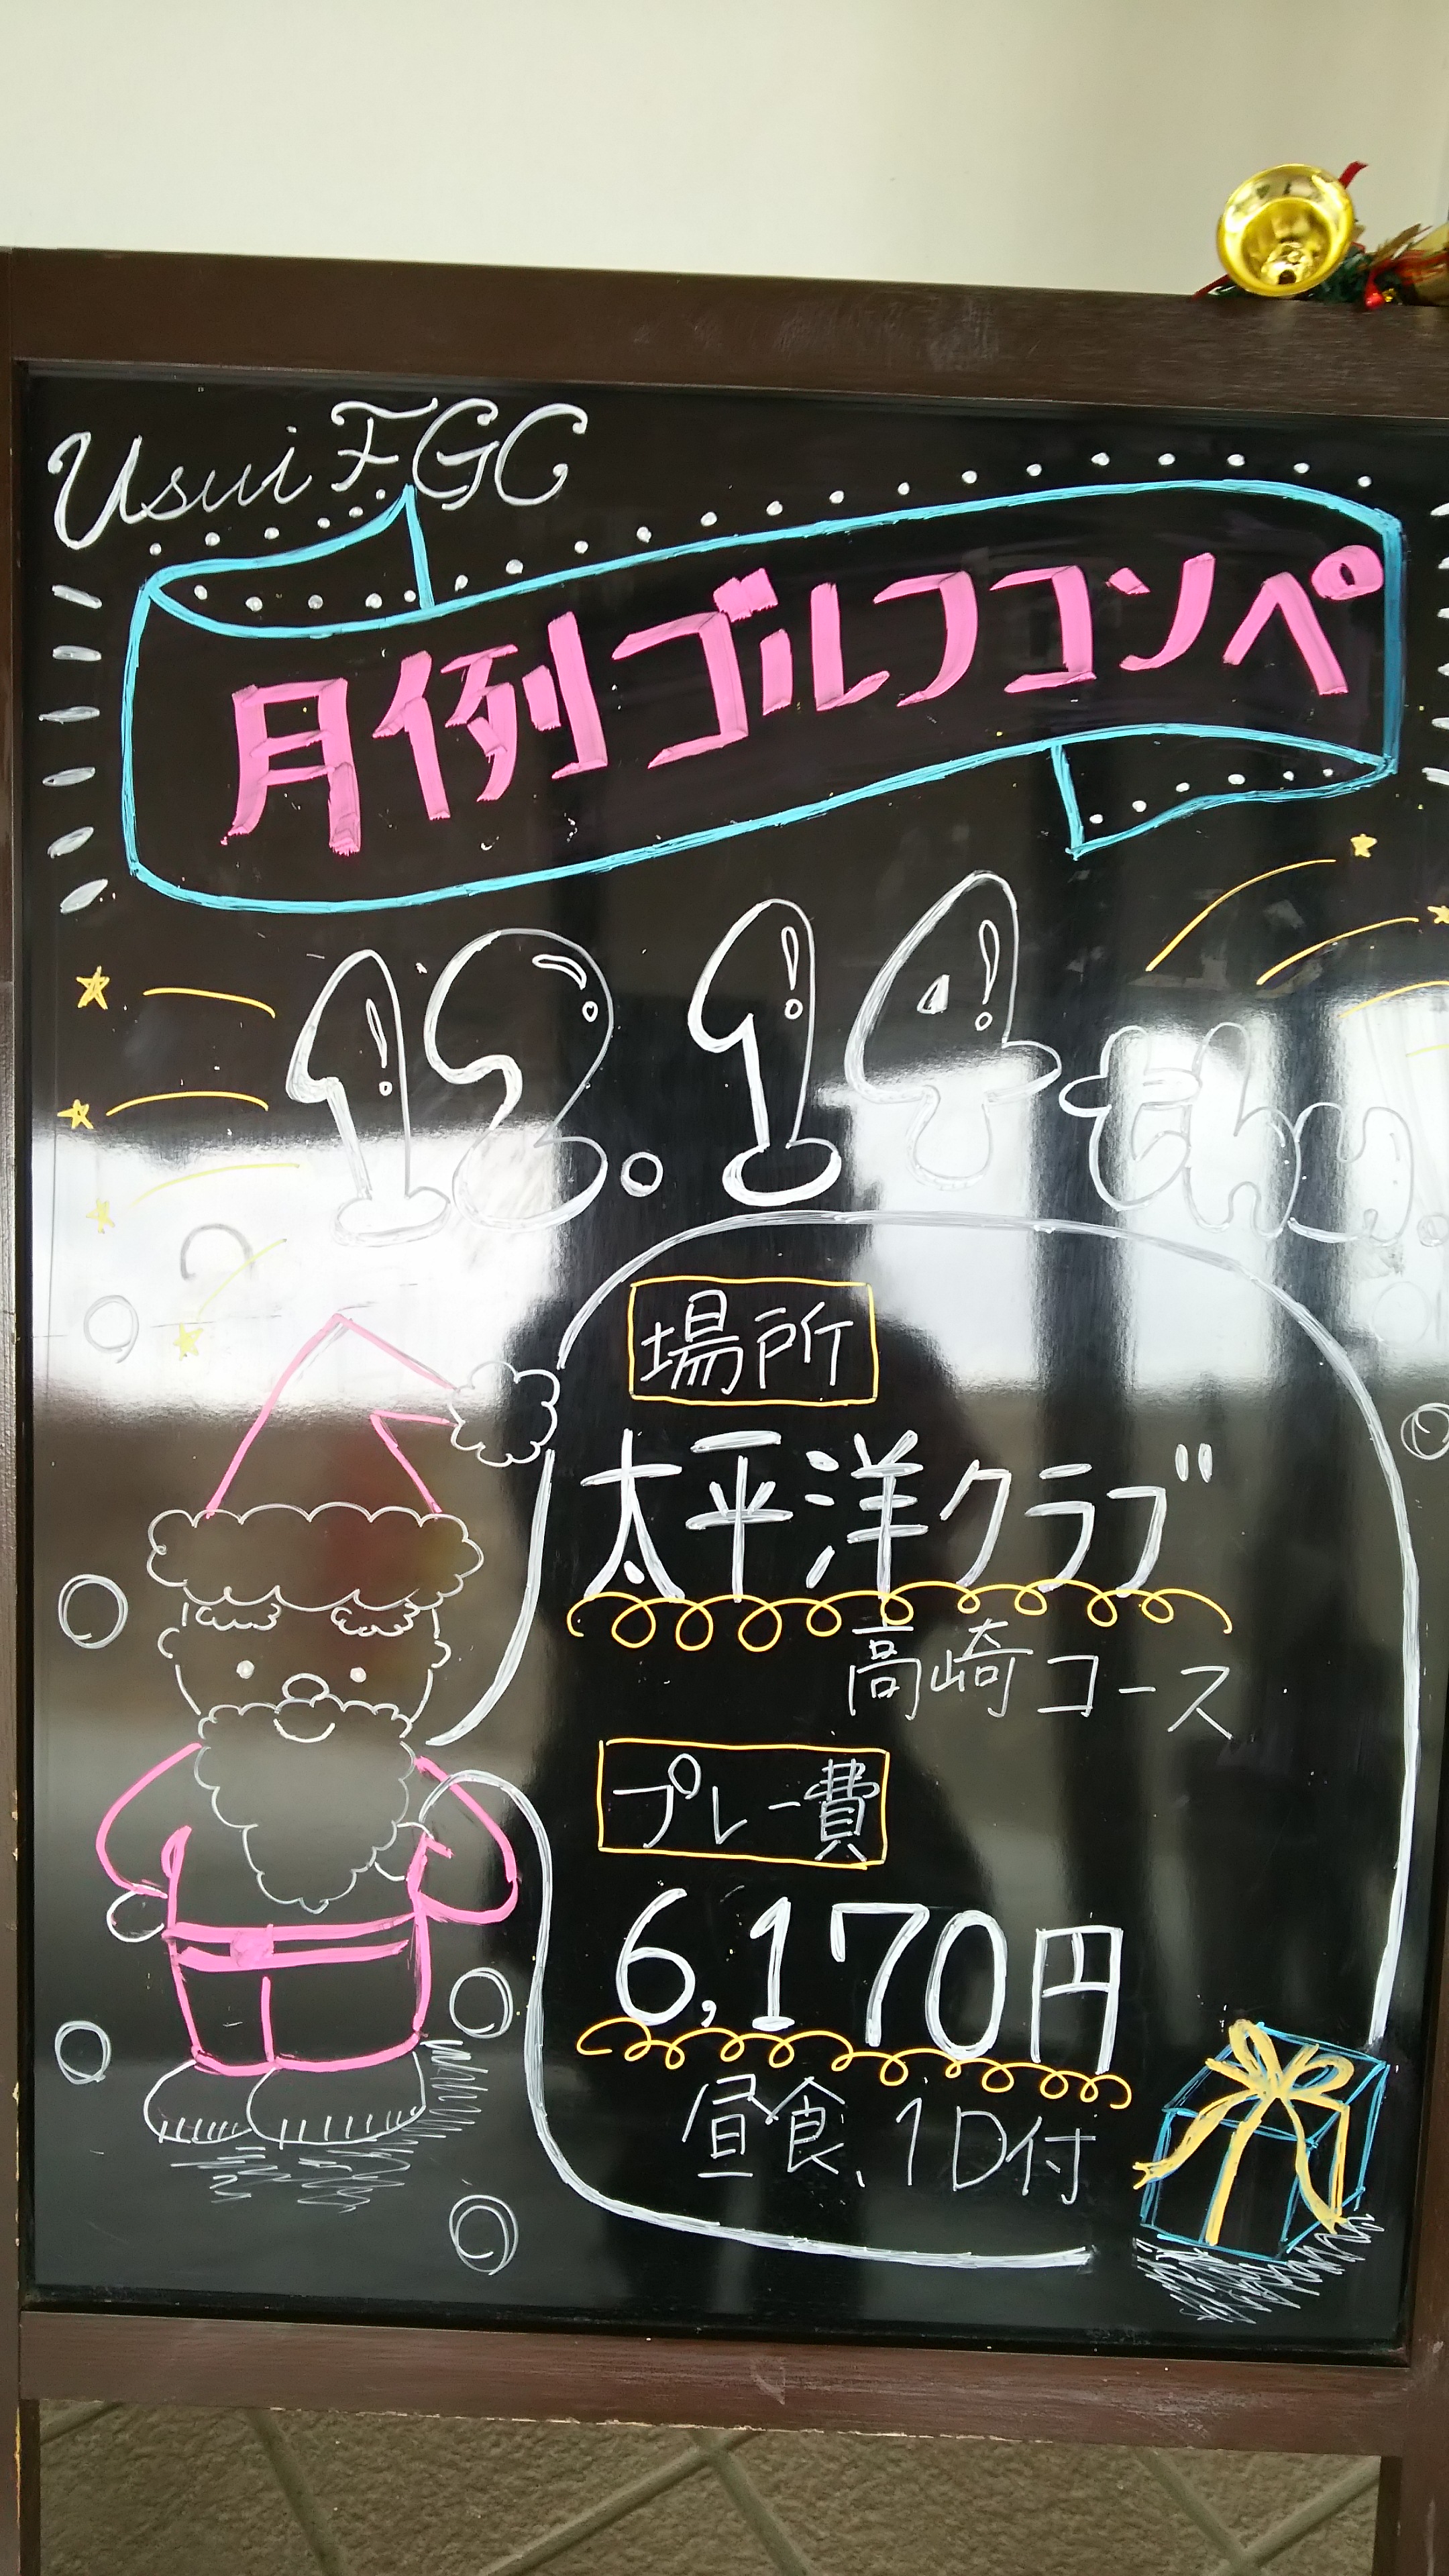 Usui FGC
月例ゴルフコンペ
12.14 thu.
場所
太平洋クラブ
高崎コース
プレー費
6,170円
昼食、1D付